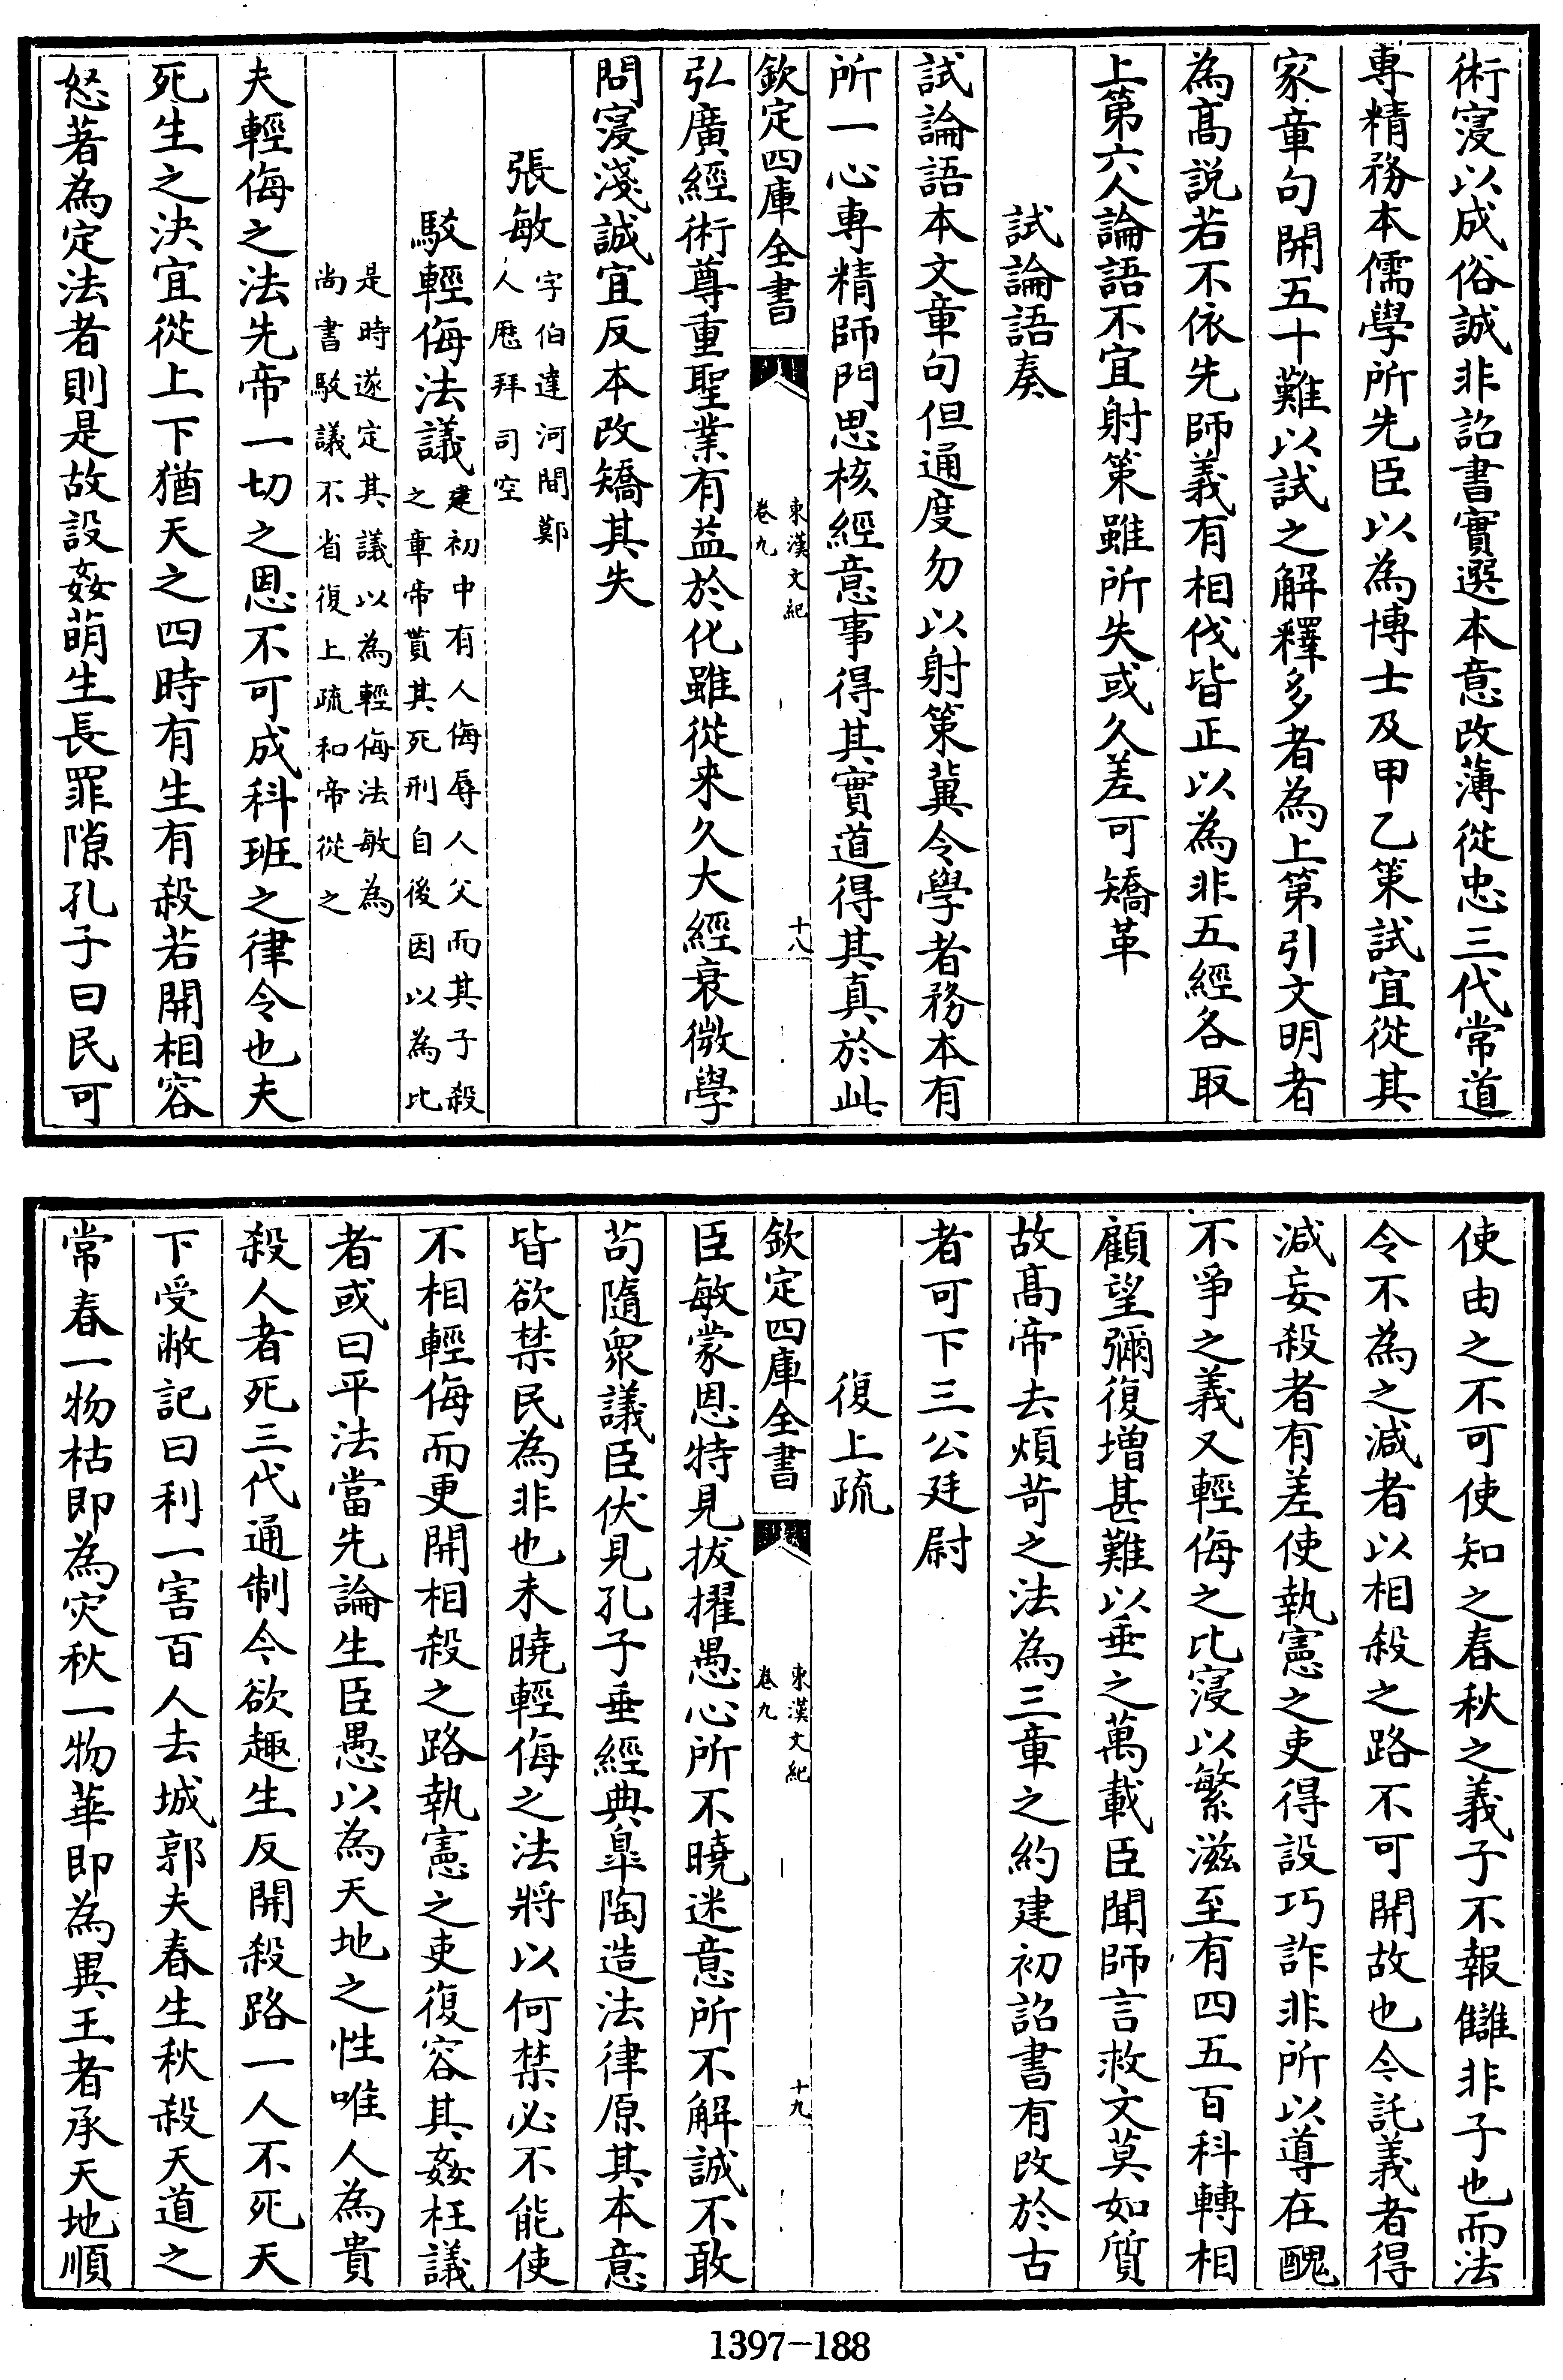 術寖以成俗誠非詔書實選本意改薄從忠三代常道
專精務本儒學所先臣以為博士及甲乙策試宜從其
家章句開五十難以試之解釋多者為上第引文明者
為髙説若不依先師義有相伐皆正以為非五經各取
上第六人論語不宜射策雖所失或久差可矯革
試論語奏
試論語本文章句但通度勿以射策冀令學者務本有
所一心專精師門思核經意事得其實道得其真於此
欽定四庫全書
東漢文紀
卷九
十八
弘廣經術尊重聖業有益於化雖從來久大經衰微學
問寖淺誠宜反本改矯其失
張敏字伯達河間鄚
人歴拜司空
駮輕侮法議建初中有人侮辱人父而其子殺
之章帝貰其死刑自後因以為比
是時遂定其議以為輕侮法敏為
尚書駮議不省復上疏和帝從之
夫輕侮之法先帝一切之恩不可成科班之律令也夫
死生之決宜從上下猶天之四時有生有殺若開相容
恕著為定法者則是故設姦萌生長罪隙孔子曰民可
使由之不可使知之春秋之義子不報讎非子也而法
令不為之減者以相殺之路不可開故也令託義者得
減妄殺者有差使執憲之吏得設巧詐非所以導在醜
不爭之義又輕侮之比寖以繁滋至有四五百科轉相
顧望彌復増甚難以垂之萬載臣聞師言救文莫如質
故髙帝去煩苛之法為三章之約建初詔書有改於古
者可下三公廷尉
復上疏
欽定四庫全書
東漢文紀
卷九
十九
臣敏蒙恩特見拔擢愚心所不曉迷意所不解誠不敢
苟隨衆議臣伏見孔子垂經典臯陶造法律原其本意
皆欲禁民為非也未曉輕侮之法將以何禁必不能使
不相輕侮而更開相殺之路執憲之吏復容其姦枉議
者或曰平法當先論生臣愚以為天地之性唯人為貴
殺人者死三代通制今欲趣生反開殺路一人不死天
下受敝記曰利一害百人去城郭夫春生秋殺天道之
常春一物枯即為灾秋一物華即為異王者承天地順
1397-188